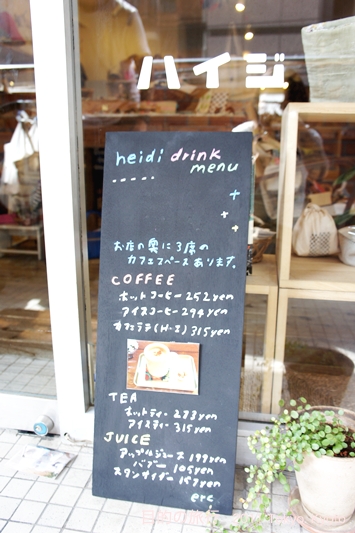 ハイジ
heidi drink
menu
お店の奥に3席の
カフェスペースあります。
COFFEE
ホットコーヒー 252yen
アイスコーヒー 294yen
カフェラテ(H・I) 315yen
TEA
ホットティー 273yen
アイスティー 315yen
JUICE
アップルジュース 199yen
105yen
157yen
etc